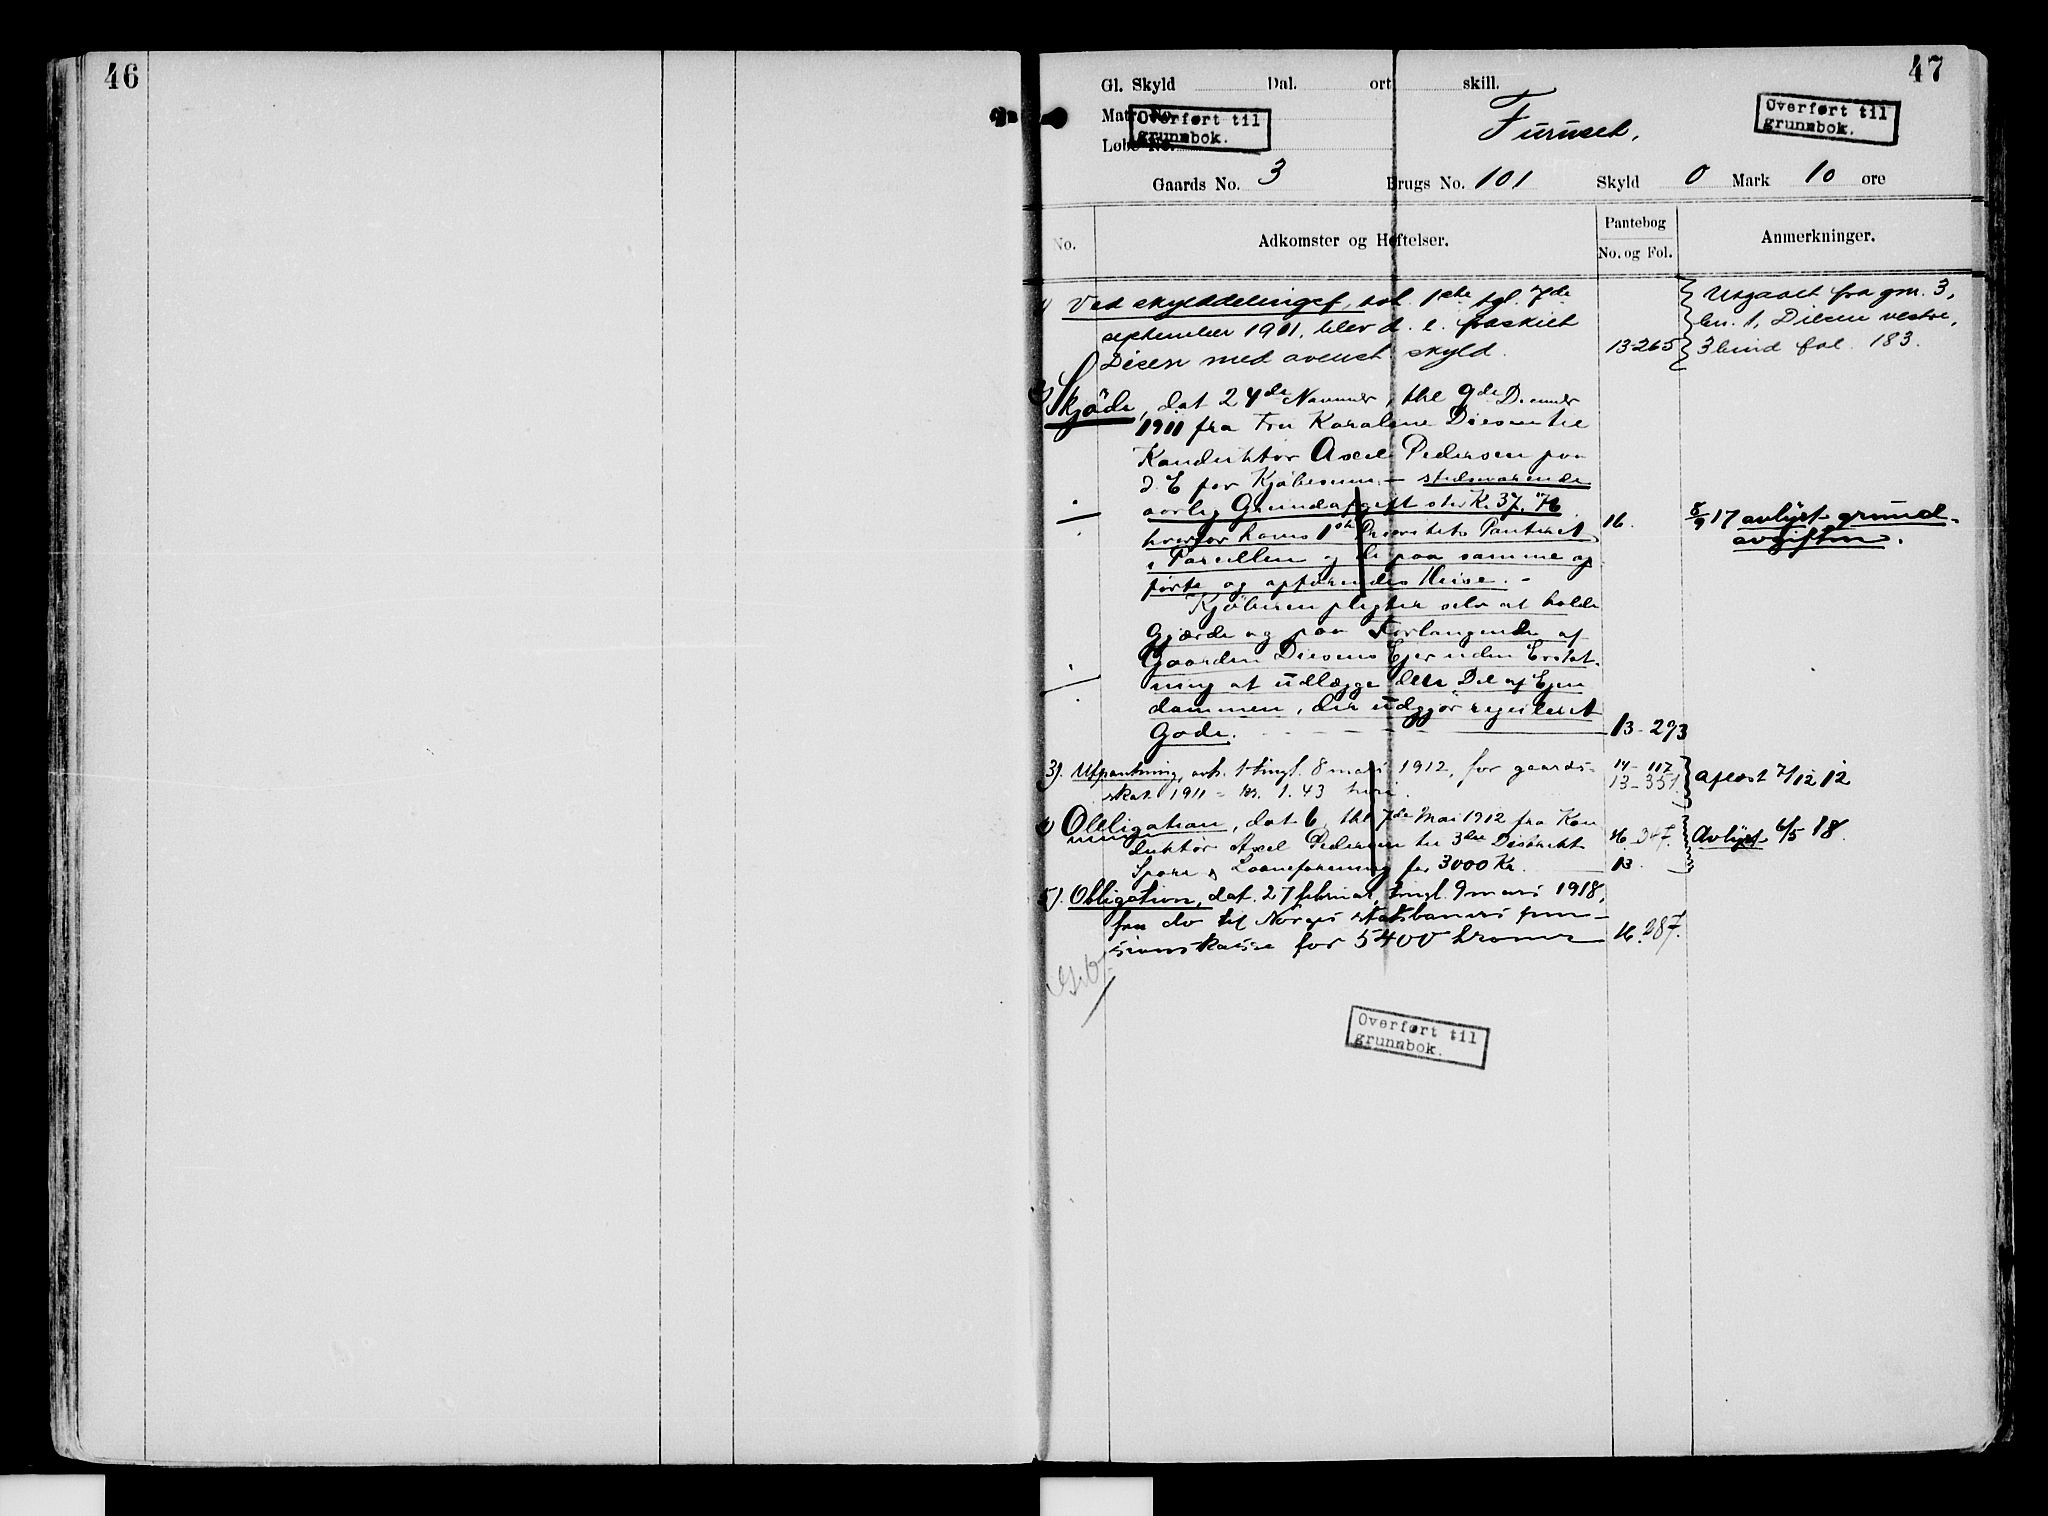 46
47
Gl. Skyld Dal. ort skill.
Matr. No.
Løbe No.
Overført til
grunnbok.
Furuset.
Overført til
grunnbok.
Gaards No. 3 Brugs No. 101 Skyld 0 Mark 10 øre
No. Adkomster og Heftelser. Pantebog No. og Fol. Anmerkninger.
1) Ved skylddelingsf., avh. 1ste tgl. 7de
september 1911, blev d. e. fraskilt
Disen med ovenst. skyld. 13-265
Utgaaet fra gnr. 3,
bn. 1, Disen vestre,
3 bind fol. 183.
2) Skjøde, dat 24de November, thl 9de December
1911 fra Fru Karoline Diesen til
Konduktør Axel Pedersen paa
d. E for Kjøbesum. – stedsevarende
aarlig Grundafgift stor Kr. 37,76
hvorfor haves 1ste Prioritets Panteret 16.
i Parcellen og de paa samme op
førte og opførendes Huse. –
8/9 17 avlyst grund-
avgiften.
Kjøberen pligter selv at holde
Gjærde og paa Forlangende af
Gaarden Diesens Ejer uden Erstat-
ning at udlægge den Del af Ejen
dommen, der udgjør reguleret
Gade. 13-293
3). Utpantning, avh. 1 tingl. 8 mars 1912, for gaards-
skat 1911 = kr. 1.43
14-117
13-351
Aflæst 7/12 12
4) Obligation, dat 6, thl 7de Mai 1912 fra Kon
duktør Axel Pedersen til 3die Distrikt
Spare & Laaneforening for 3000 Kr.
16. 347.
13.
Avlyst 6/5 18.
5). Obligation, dat. 27 februar, tingl. 9 mars 1918,
fra do til Norges statsbaners pen-
sionskasse for 5400 kroner 16. 287.
Overført til
grunnbok.